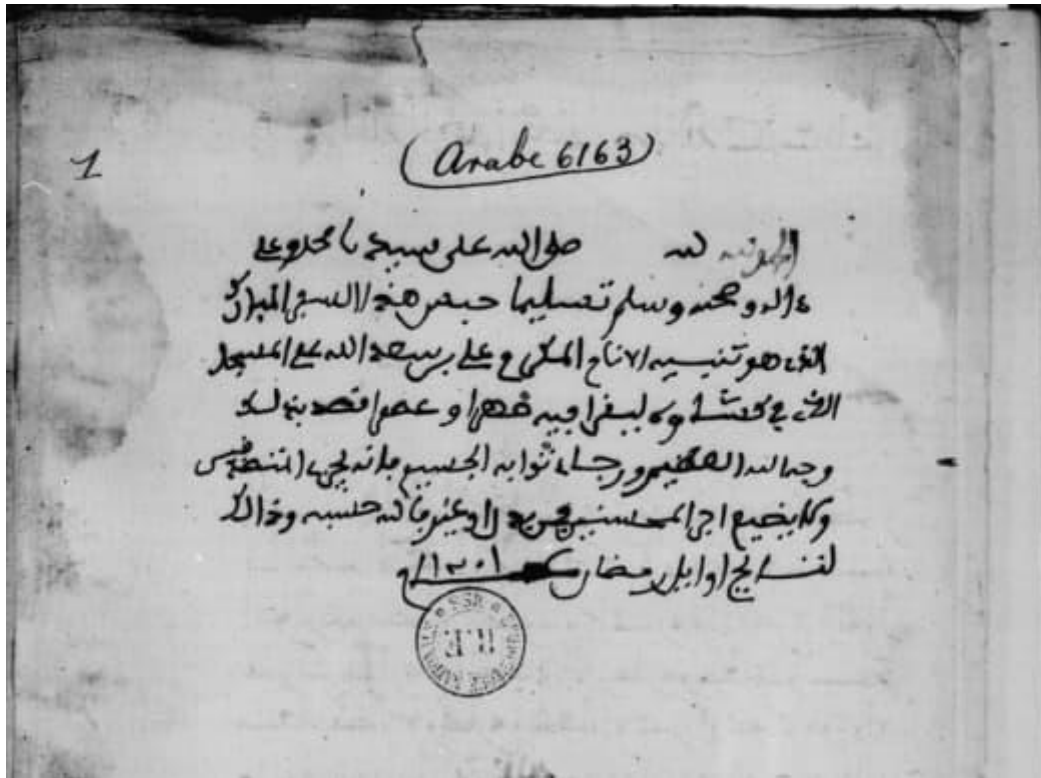 1
(Arabe 6163)
الحمد لله صلى الله على سيدنا محمد وعلى
ءاله وصحبه وسلم تسليما حبس هذا السفر المبارك
الذي هو تنبيه الانام المكرم علي بن سعد الله على المسجد
الذي في ليقرا فيه ظهرا وعصرا قصد بذلك
وجه الله العظيم ورجاء ثوابه الجسيم فانه يجزي المتصدقين
ولا يضيع اجر المحسنين فمن بدل او غير فالله حسيبه وذالك
في اوايل رمضان سنة ١٢٠١